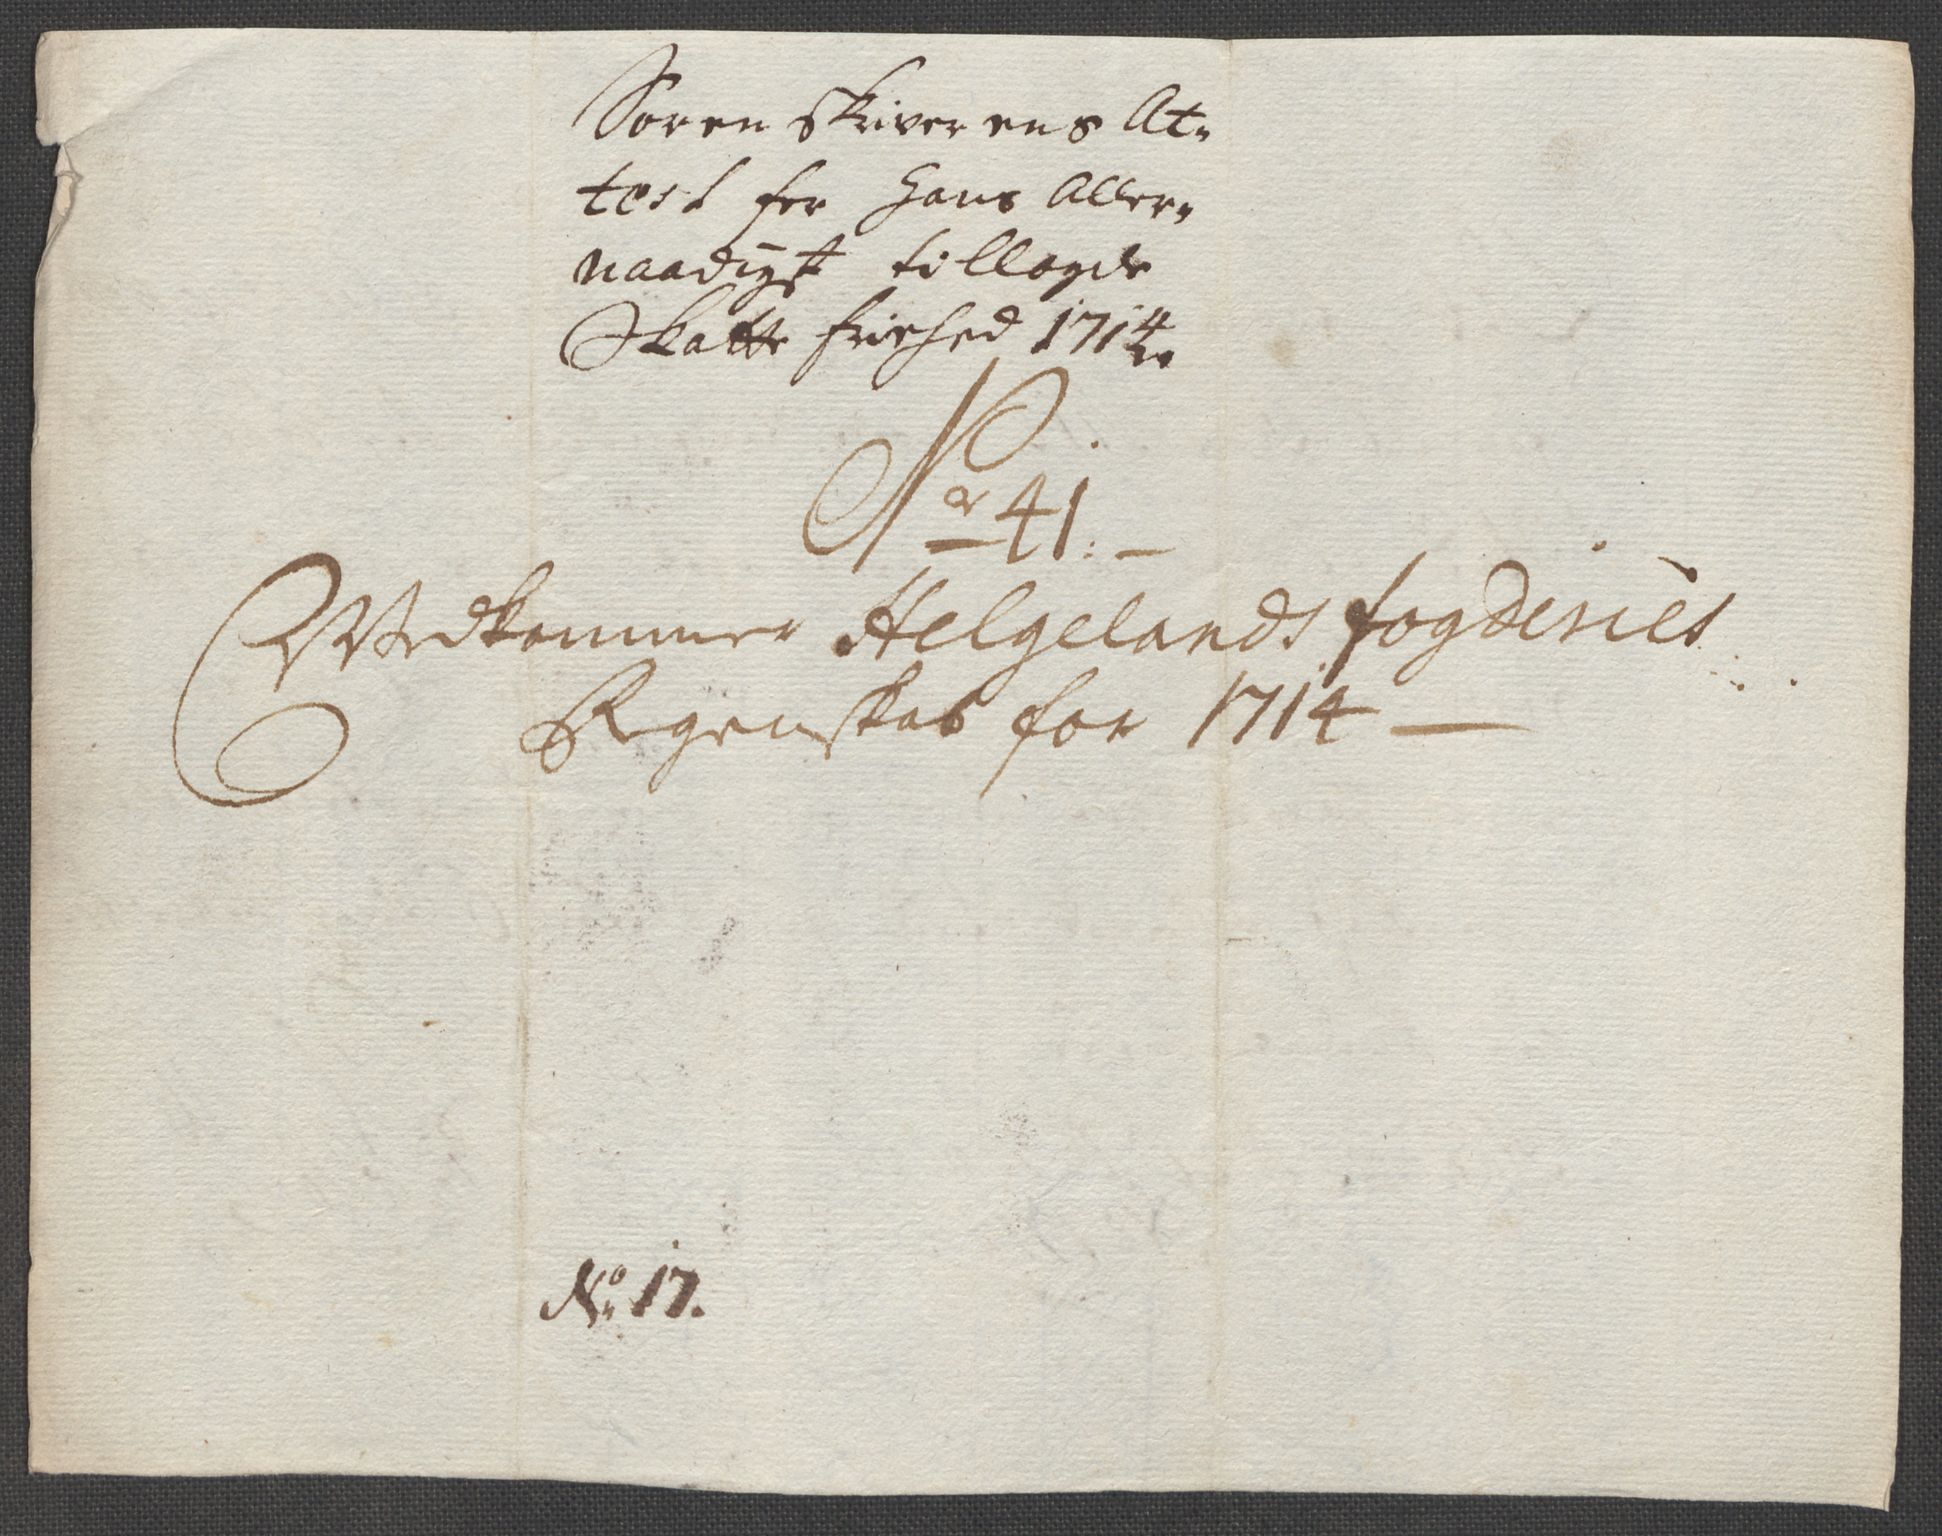 Soren skriverens At-
test for Hans Aller-
naadigst tillagde
Skatte friehed 1714
Nr 41:
Vedkommer Helgelands fogderies
Regenskab for 1714
No 17.